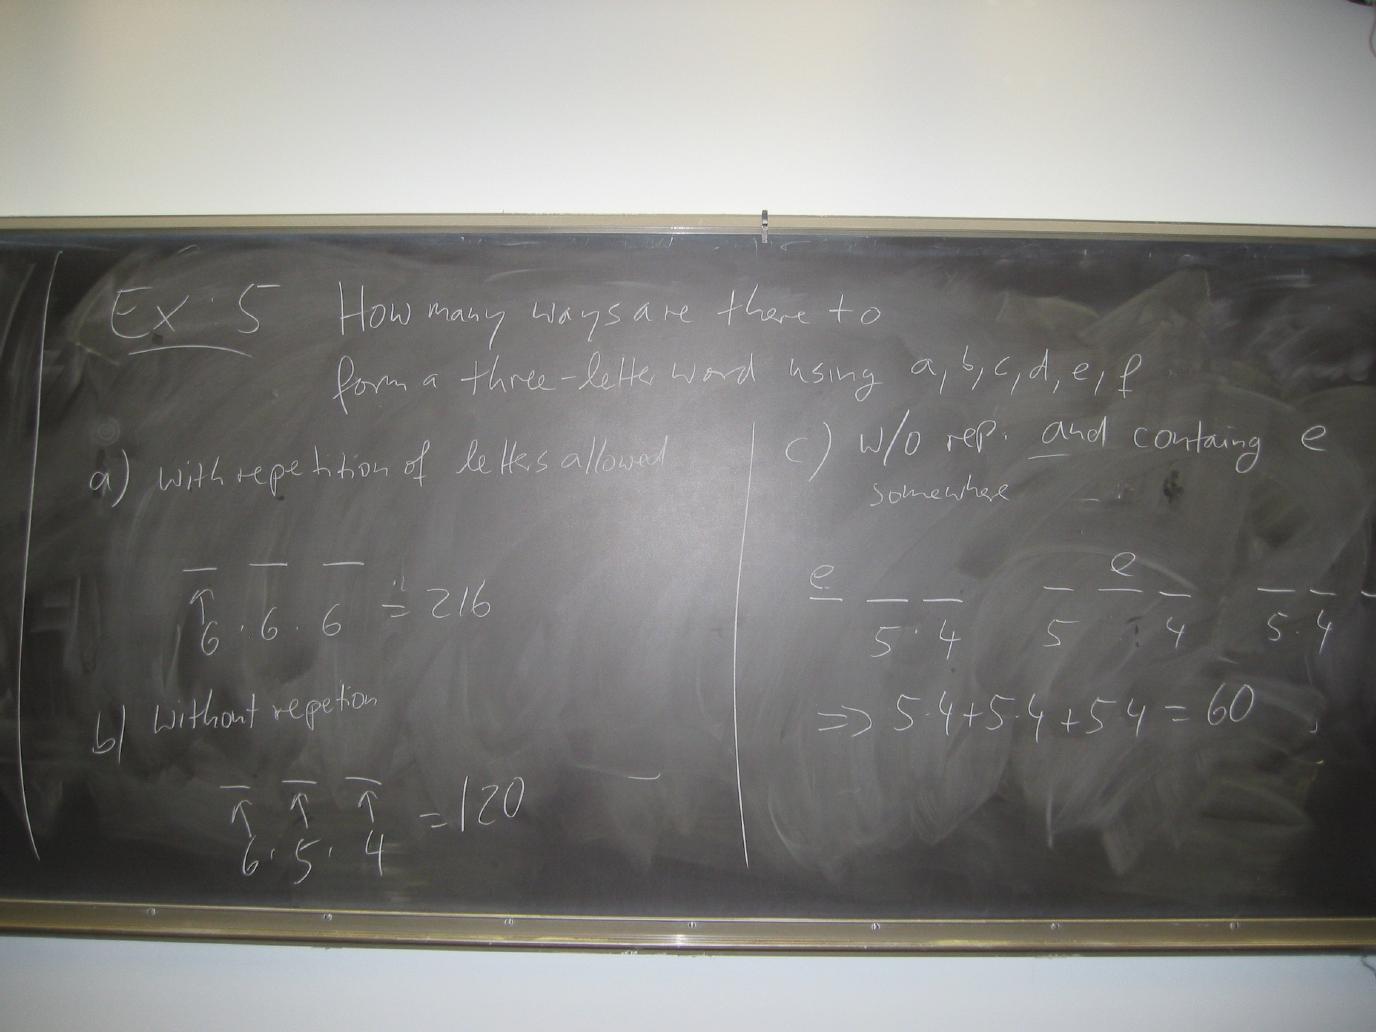 Ex. 5 How many ways are there to
form a three-letter word using a, b, c, d, e, f
a) with repetition of letters allowed
6 · 6 · 6 = 216
b) without repetion
6 · 5 · 4 = 120
c) w/o rep. and containg e
somewhere
e e
5 · 4 5 4 5 · 4
=> 5·4+5·4+5 4 = 60